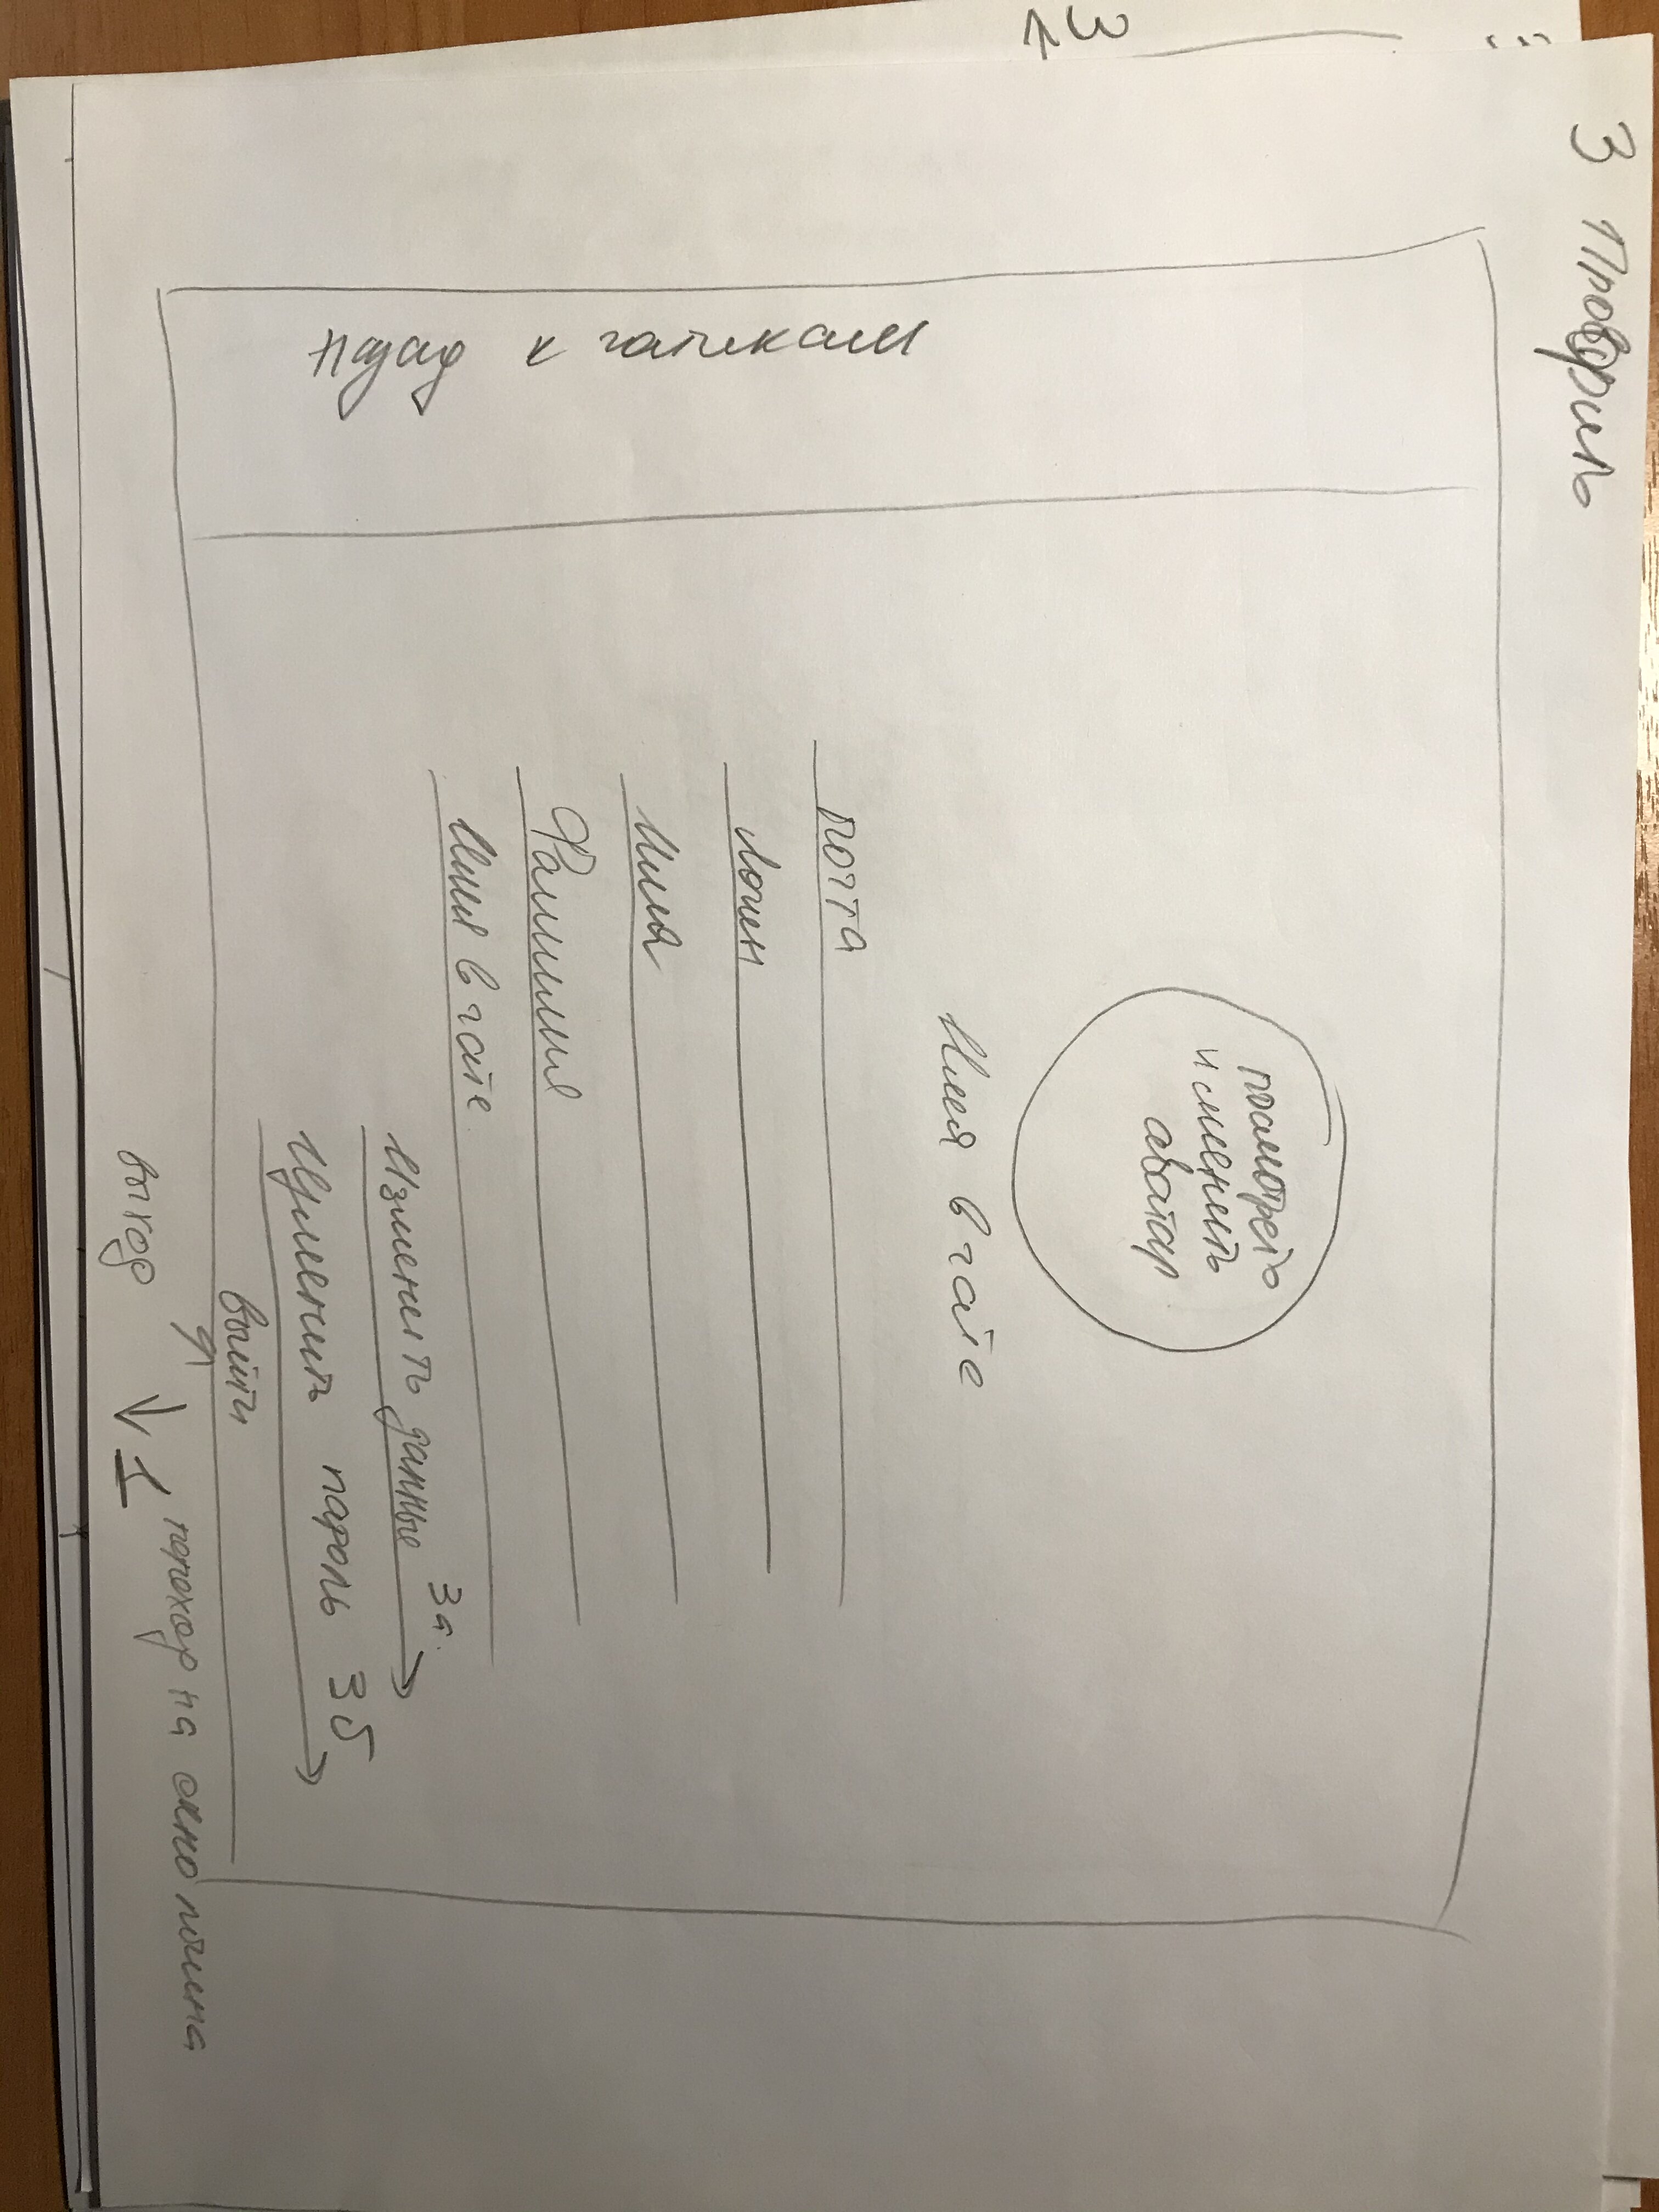 3 Профиль
Назад к чатикам
посмотреть
и сменить
аватар
Имя в чате
почта
логин
Имя
Фамилия
Имя в чате
Изменить данные 3а.
Изменить пароль 3б
Выйти
выход → 1 переход на окно логина